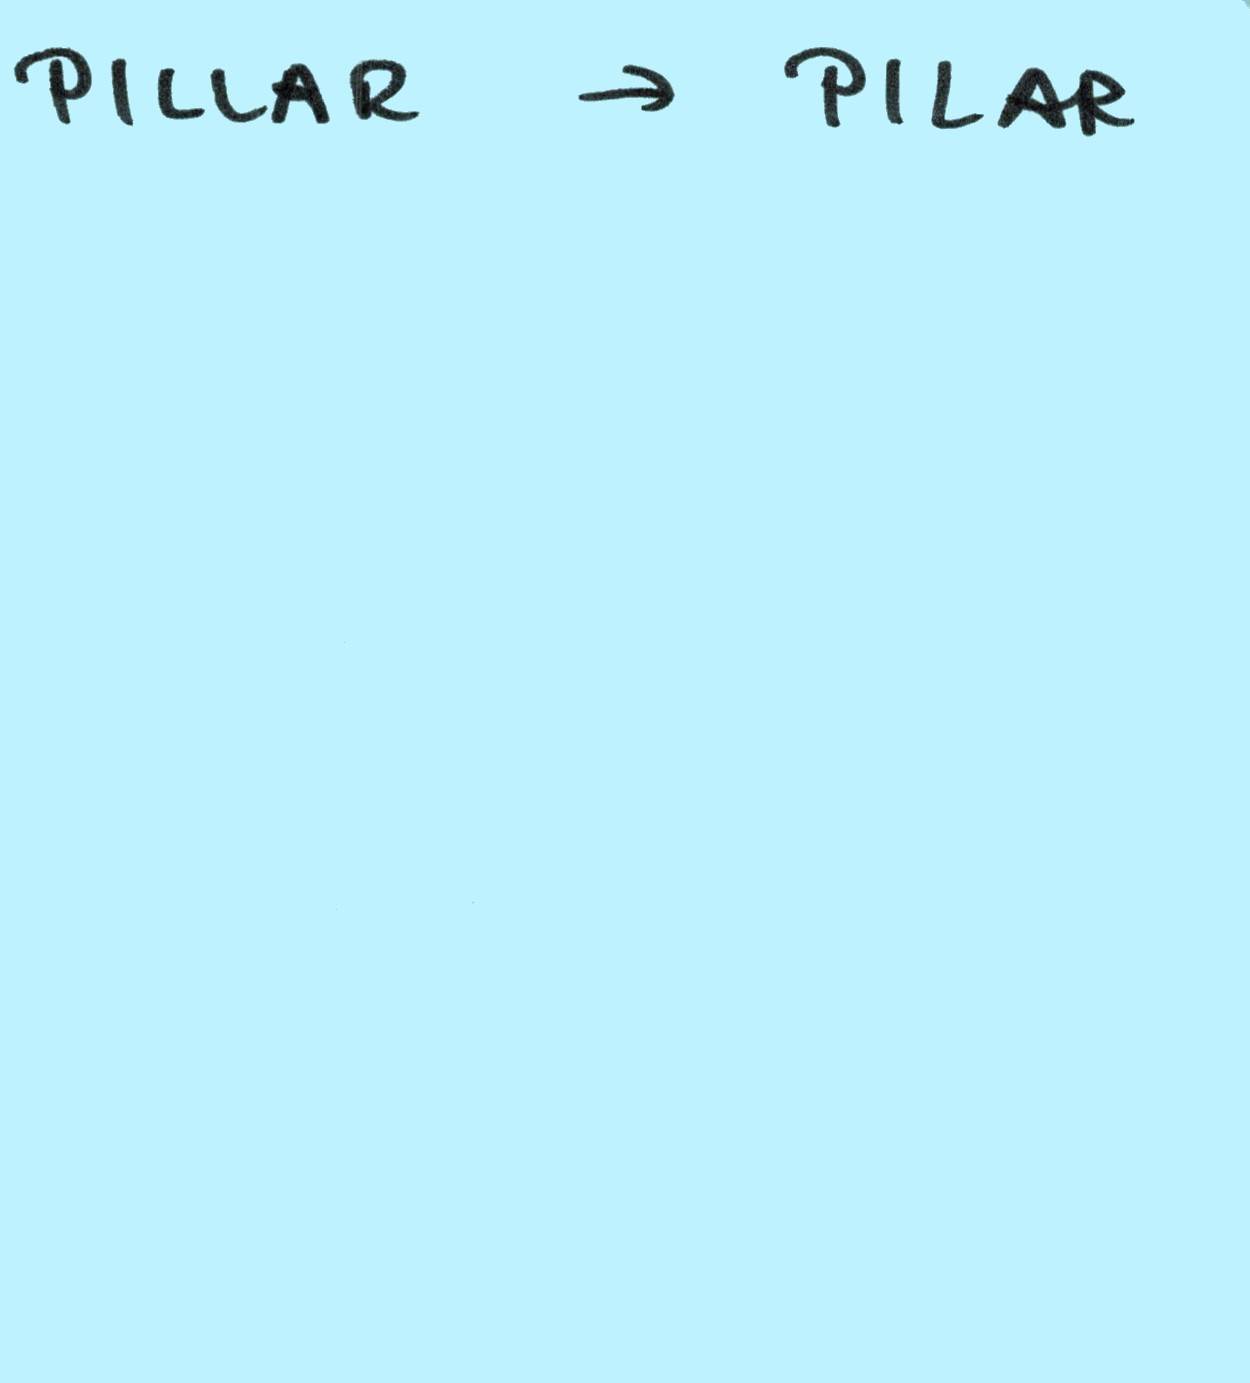 PILLAR → PILAR